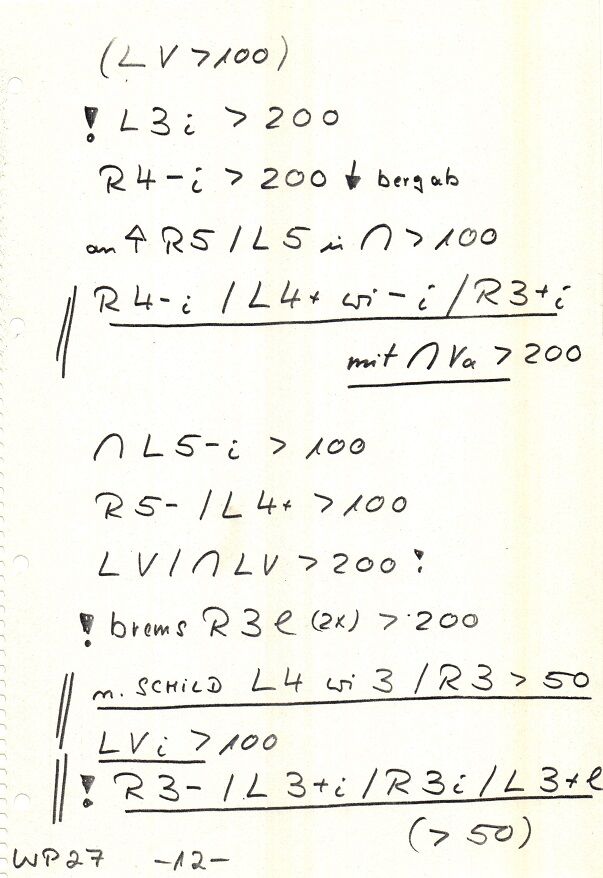 (LV >100)
! L3i > 200
R4-i > 200 ↓ bergab
an ↑ R5 / L5 in ∩ > 100
R4-i / L4+ wi-i / R3+i
mit ∩ Va > 200
∩ L5-i > 100
R5- / L4+ > 100
LV / ∩ LV > 200 !
! brems R3l (2x) > 200
n. SCHILD L4 wi 3 / R3 > 50
LVi > 100
! R3- / L3+i / R3i / L3+l
(> 50)
WP27 -12-